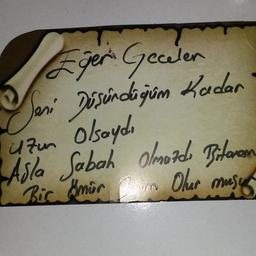 Eğer Geceler
Seni Düşündüğüm Kadar
uzun Olsaydı
Asla Sabah Olmazdı Bitanem
Bir Ömür Olur musun